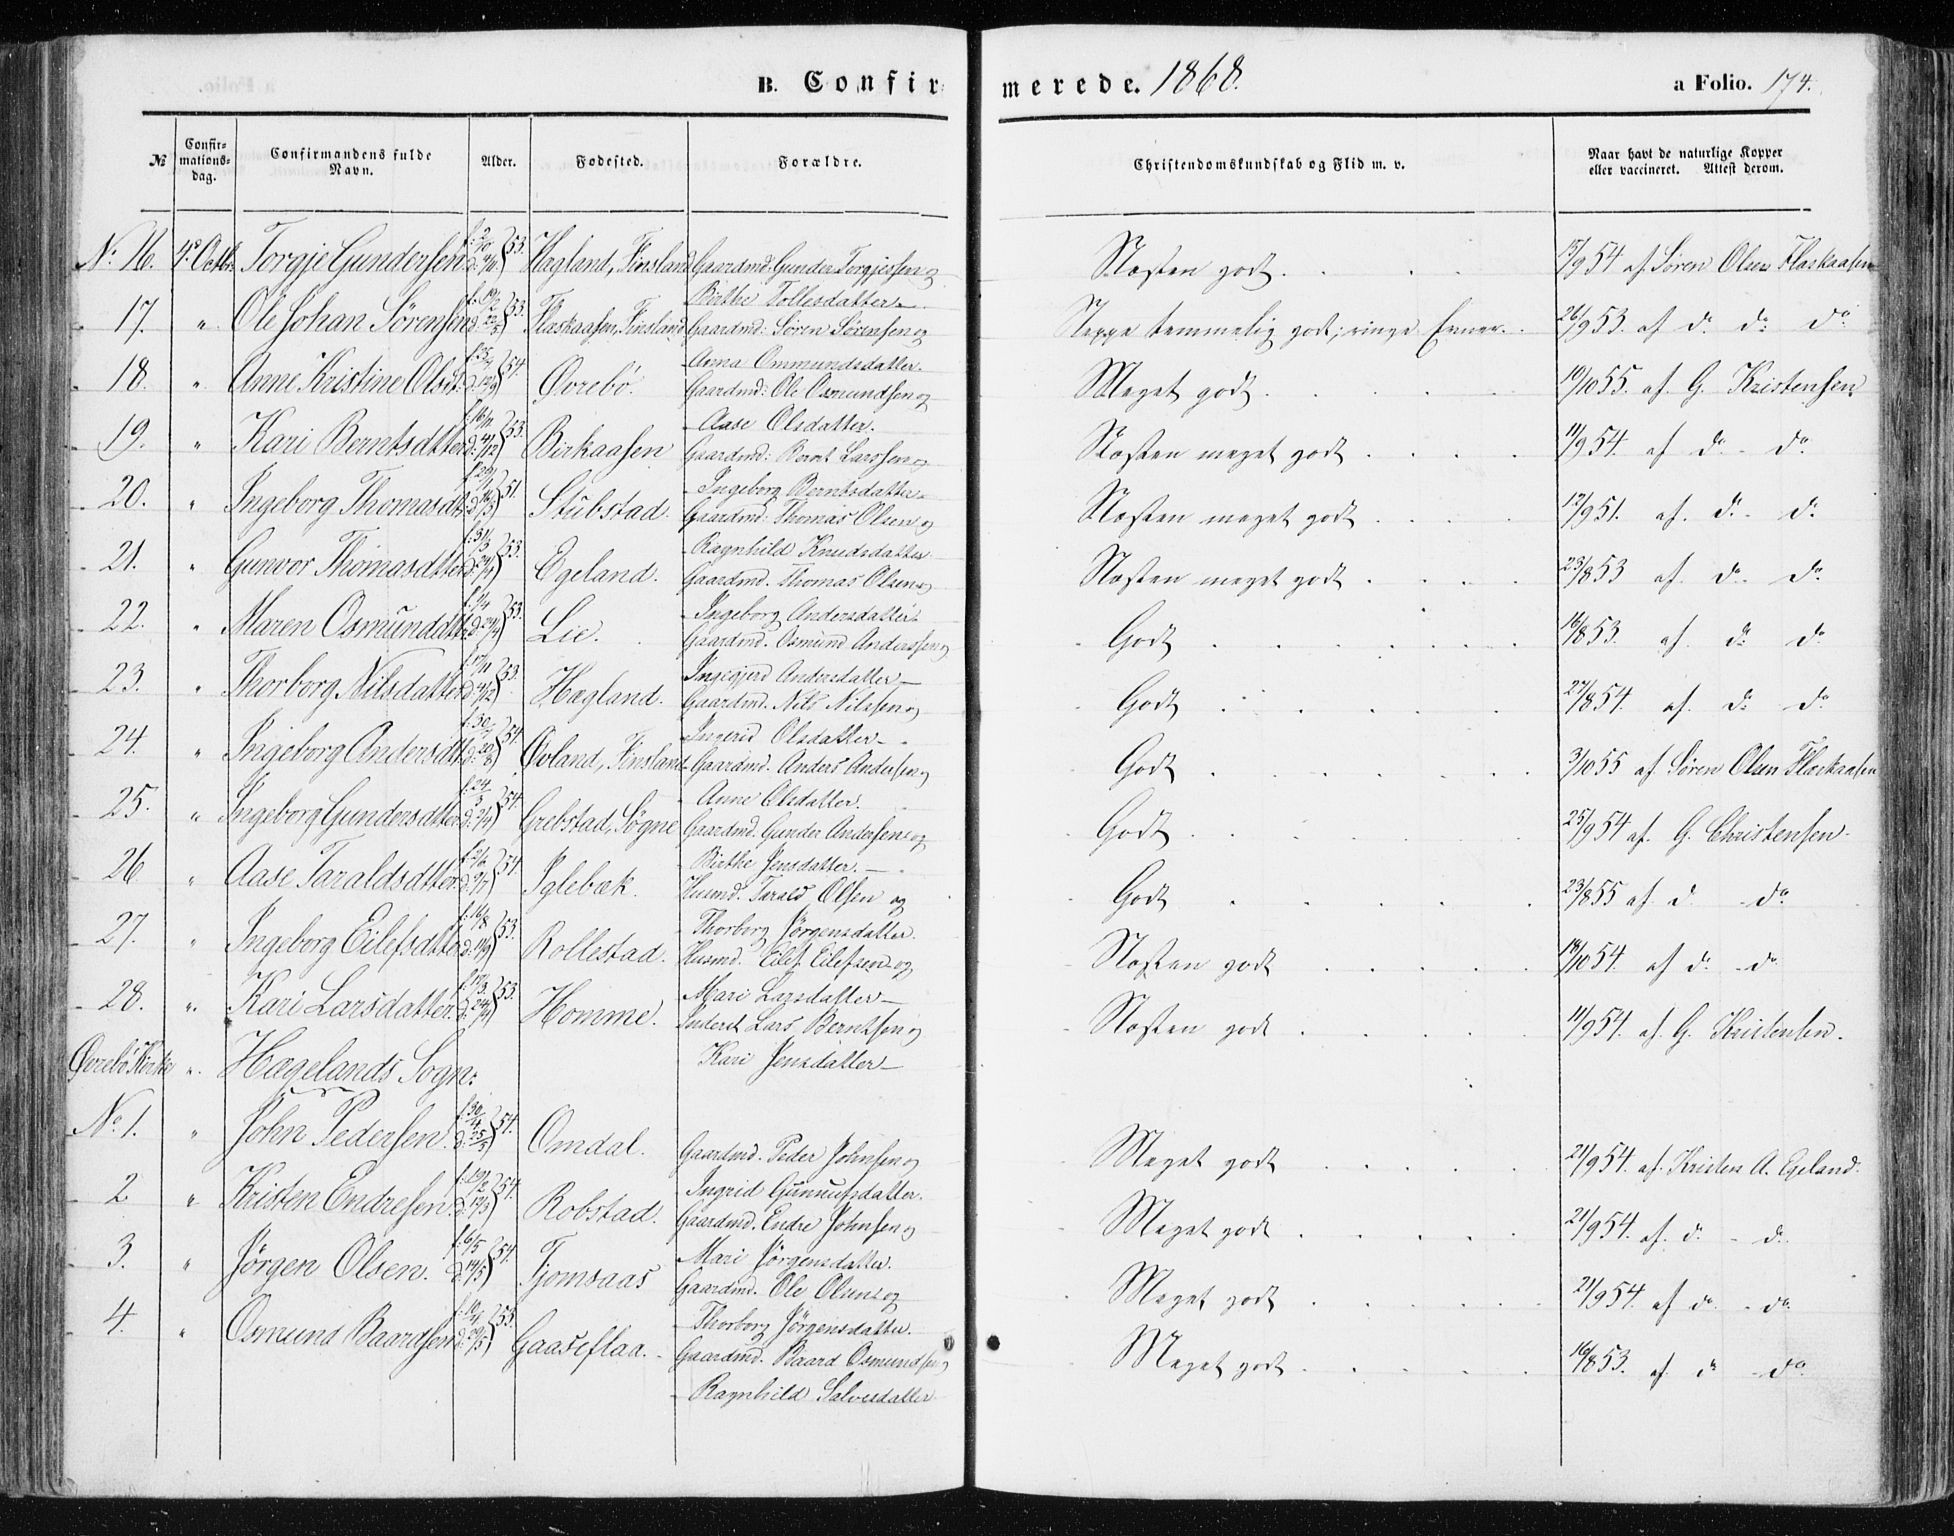 B. Confirmerede. 1868. a Folio. 174.
№ Confirmationsdag. Confirmandens fulde Navn. Alder. Fødested. Forældre. Christendomskundskab og Flid m. v. Naar havt de naturlige Kopper eller vaccineret. Attest derom.
No. 16. 4de Octbr. Torgje Gundersen 53. Hægland, Finsland Gaardmd. Gunder Torgjessen og Næsten godt. 15/9 54 af Søren Olsen Flaskaasen
Birthe Tollesdatter
17. " Ole Johan Sørensen 53. Flaskaasen, Finsland Gaardmd: Søren Sørensen og Neppe temmelig godt; ringe Evner. 26/9 53. af do. do. do.
Anna Ommundsdatter.
18. " Anne Kristine Olsd. 54. Øvrebö. Gaardmd: Ole Osmundsen og Meget godt. 10/10 55. af. G. Kristensen
Aase Olsdatter.
19. " Kari Berntsdtter 53. Birkaasen Gaardmd: Bernt Larssen og Næsten meget godt 11/9 54. af do - do
Ingeborg Berntsdatter
20. " Ingeborg Thomasdt. 51. Stubstad. Gaardmd: Thomas Olsen og Næsten meget godt 17/9 51. af. do - do
Ragnhild Knudsdatter
21. " Gunvor Thomasdtter 53. Egeland. Gaardmd. Thomas Olsen og Næsten meget godt 23/8 53 af. do. do.
Ingeborg Andersdatter
22. " Maren Osmunddtr. 53. Lie. Gaardmd. Osmund Anderssen og Godt 16/8 53. af do do
Ingegjerd Andersdatter
23. " Thorborg Nilsdatter 53. Hægland. Gaardmd. Nils Nilssen og Godt 27/8 54. af. do do
Ingerid Olsdatter
24. " Ingeborg Andersdt. 54. Øvland, Finsland Gaardmd. Anders Andersen og Godt 3/10 55 af Søren Olsen Flaskaasen
Anne Olsdatter.
25. " Ingeborg Gundersdtter 54. Grebstad, Søgne Gaardmd. Gunder Andersen og Godt 25/9 54 af. G. Christensen
Birthe Jensdatter.
26 " Aase Taraldsdtter 54. Iglebæk. Husmd. Tarald Olsen og Godt 23/8 55 af d - do
Thorborg Jørgensdatter.
27. " Ingeborg Eilefsdtter 53. Rollestad. Husmd. Eilef Eilefsen og Næsten godt 18/10 54. af d - do
Mari Larsdatter
28. " Kari Larsdatter. 53. Homme. Inderst Lars Berntsen og Næsten godt 11/9 54. af. G. Kristensen.
Kari Jensdatter
Øvrebö Kirke ". Hægelands Sogn:
No. 1. " John Pedersen. 54. Omdal. Gaardmd. Peder Johnsen og Meget godt 21/9 54. af: Kristen A. Egeland.
Ingrid Gunnufsdatter.
2 " Kristen Endresen. 54. Robstad. Gaardmd. Endre Johnsen og Meget godt 21/9 54. af. d. - d.
Mari Jørgensdatter.
3. " Jørgen Olsen. 54. Tjomsaas Gaardmd. Ole Olsen og Meget godt 21/9 54. af do - do
Thorborg Jørgensdatter.
4. " Osmund Baardsen 53. Gaaseflaa. Gaardmd. Baard Osmundsen og Meget godt 16/8 53. af. d - do
Ragnhild Salvesdatter